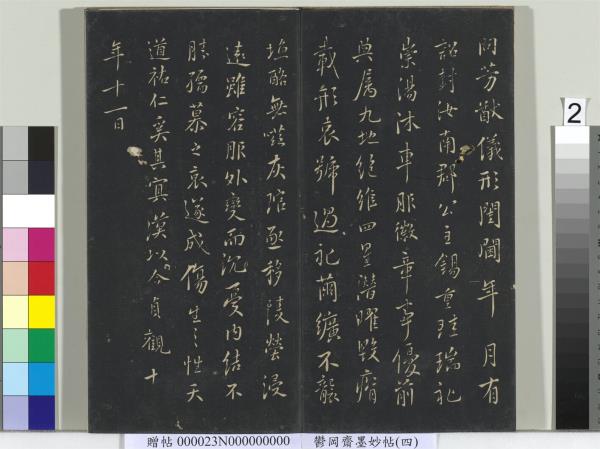 問芳猷儀形閨閫年 月有
詔封汝南郡公主錫重珪瑞礼
崇湯沐車服徽章事優前
典属九地絕維四星潛曜毀瘠
載形哀號過礼繭纊不襲
塩酪無嗞灰琯亟移陵塋浸
遠雖容服外變而沉憂內結不
勝孺慕之哀遂成傷生之性天
道祐仁奚其冥漠以今貞觀十
年十一月
2
贈帖 000023N000000000 鬱岡齋墨妙帖(四)